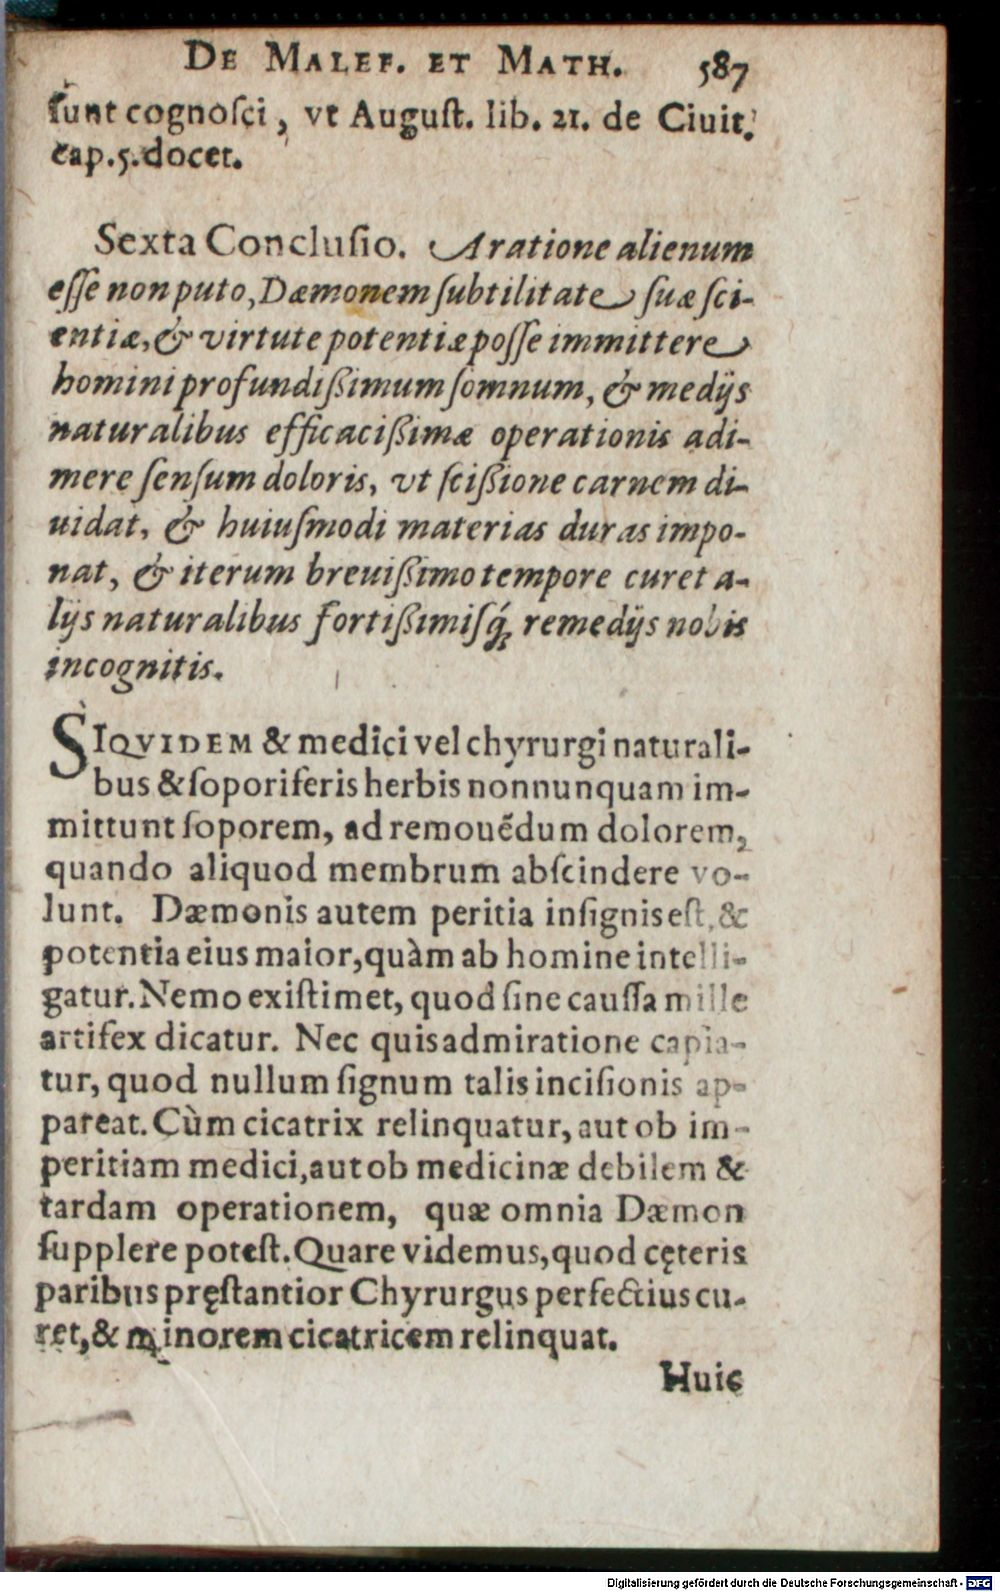 DE MALEF. ET MATH. 587
ſunt cognoſci, vt Auguſt. lib. 21. de Ciuit.
cap. 5. docet.
Sexta Concluſio. A ratione alienum
eſſe non puto, Dæmonem ſubtilitate ſuæ ſci-
entiæ, & virtute potentiæ poſſe immittere
homini profundißimum ſomnum, & medijs
naturalibus efficacißimæ operationis adi-
mere ſenſum doloris, vt ſcißione carnem di-
uidat, & huiuſmodi materias duras impo-
nat, & iterum breuißimo tempore curet a-
lijs naturalibus fortißimiſq́; remedijs nobis
incognitis.
SIQVIDEM & medici vel chyrurgi naturali-
bus & ſoporiferis herbis nonnunquam im-
mittunt ſoporem, ad remouẽdum dolorem,
quando aliquod membrum abſcindere vo-
lunt. Dæmonis autem peritia inſignis eſt, &
potentia eius maior, quàm ab homine intelli-
gatur. Nemo exiſtimet, quod ſine cauſſa mille
artifex dicatur. Nec quis admiratione capia-
tur, quod nullum ſignum talis inciſionis ap-
pareat. Cùm cicatrix relinquatur, aut ob im-
peritiam medici, aut ob medicinæ debilem &
tardam operationem, quæ omnia Dæmon
ſupplere poteſt. Quare videmus, quod cęteris
paribus pręſtantior Chyrurgus perfectius cu-
ret, & minorem cicatricem relinquat.
Huic
Digitalisierung gefördert durch die Deutsche Forschungsgemeinschaft - DFG